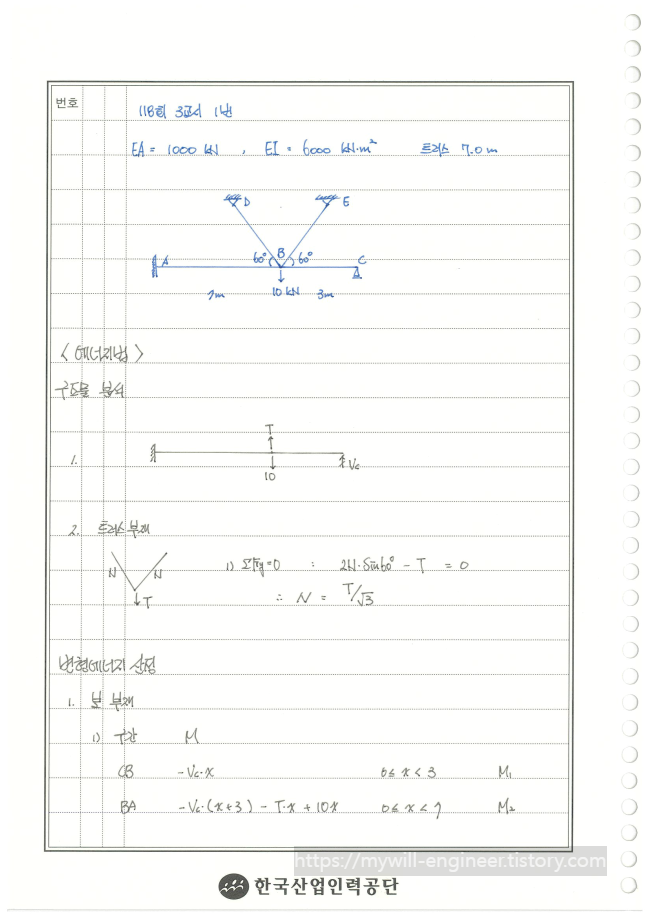 번호
118회 3교시 1번
EA = 1000 kN , EI = 6000 kN·m² 트러스 7.0m
D E
A 60° B 60° C
7m 10 kN 3m
〈에너지법〉
구조물 분리
T
1. Vc
10
2. 트러스 부재
N N 1) ΣFy=0 : 2N·Sin60° - T = 0
T ∴ N = T/√3
변형에너지 산정
1. 보 부재
1) 구간 M
CB -Vc·x 0≤ x < 3 M₁
BA -Vc·(x+3) - T·x + 10x 0≤ x < 7 M₂
https://mywill-engineer.tistory.com
한국산업인력공단